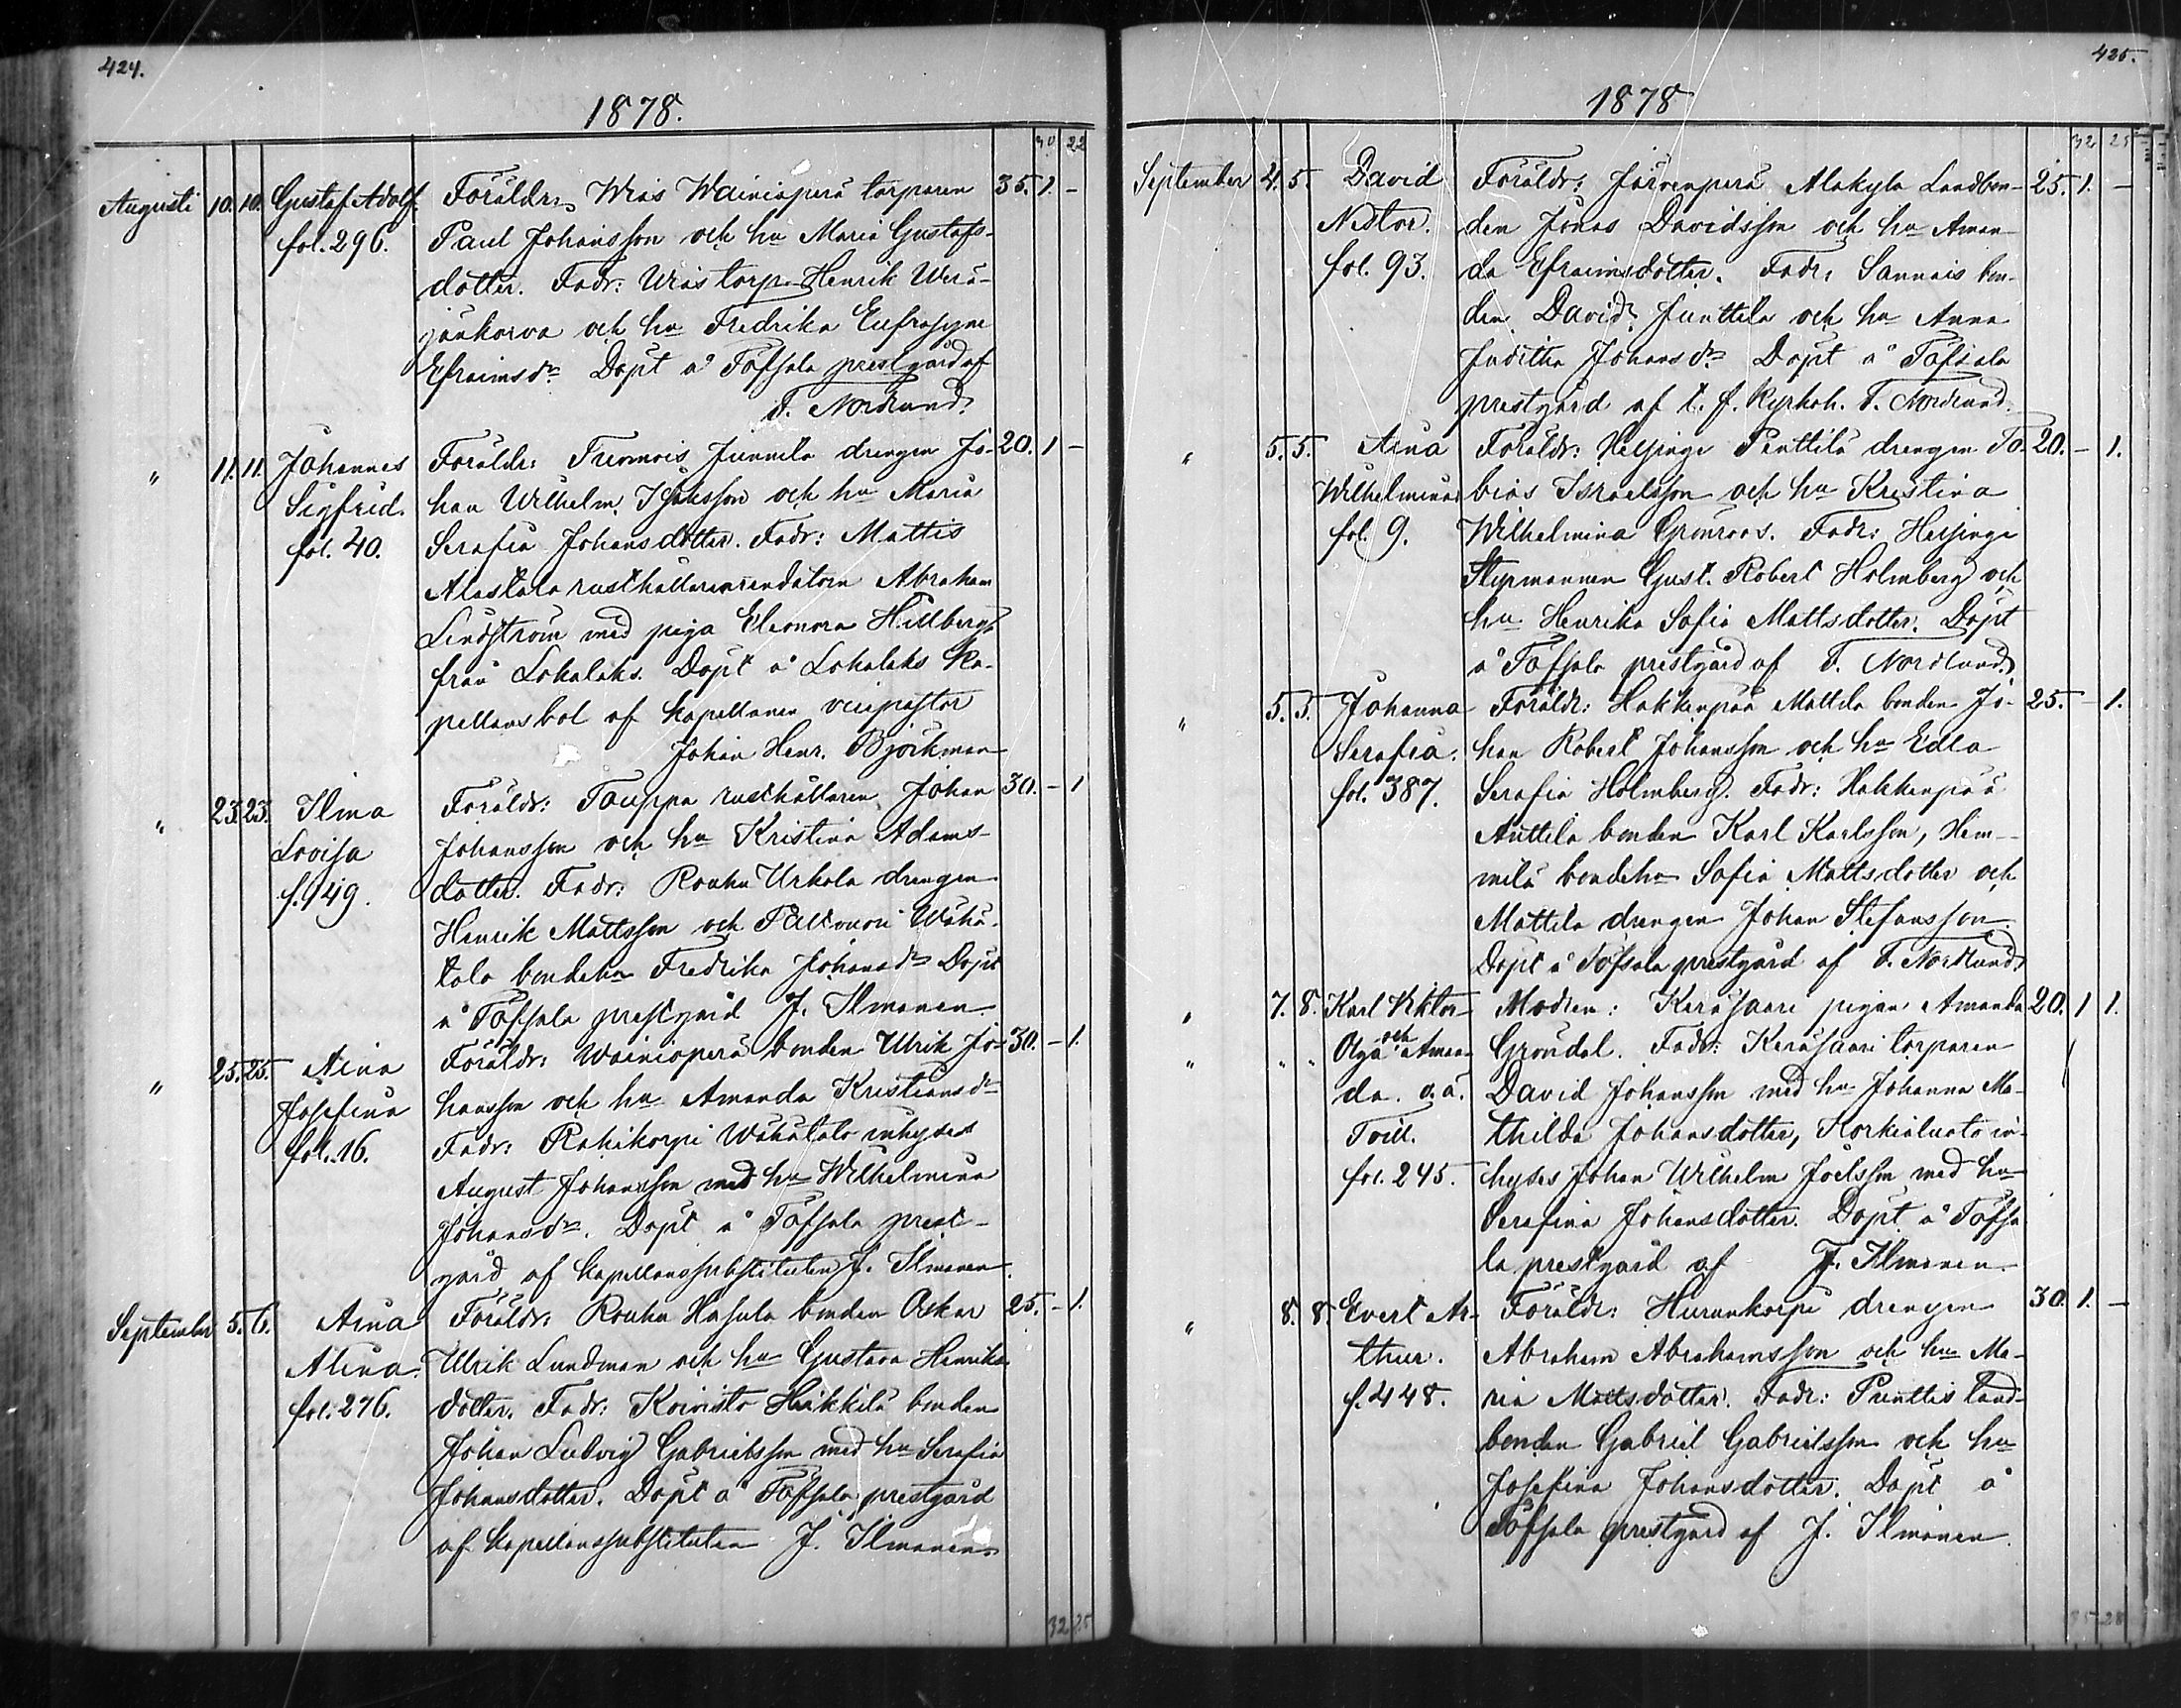 424.
1878.
30 22
Augusti 10. 10. Gustaf Adolf. Föräldr: Wias Wainiopera torparen 35. 1. -
fol. 296. Paul Johansson och hu Maria Gustafs-
dotter. Fadr: Wias torp. Henrik Werä-
jänkorva och hu Fredrika Eufrosyne
Efraimsdr. Döpt å Töfsala prestgård af
F. Nordlund.
" 11. 11. Johannes Föräldr: Junnila drengen Jo- 20. 1 -
Sigfrid. han Wilhelm Isaksson och hu Maria
fol. 40. Serafia Johansdotter. Fadr: Mattis
Alastalo rusthållarearrendatorn Abraham
Lindström med piga Eleonora Hillberg
från Lokalaks. Döpt å Lokalaks ka-
pellansbol af kapellanen vicepastor
Johan Henr. Björkman
" 23. 23. Ilma Föräldr: Tauppa rusthållaren Johan 30. - 1
Lovisa Johansson och hu Kristina Adams-
f. 149. dotter. Fadr: Rouhu Urkola drengen
Henrik Mattsson och Wähä-
talo bondehu Fredrika Johansdr Döpt
å Töfsala prestgård J. Ilmonen
" 25. 25. Aina Föräldr: Wainiopera bonden Ulrik Jo- 30. - 1.
Josefina hansson och hu Amanda Kristiansdr
fol. 16. Fadr: Rahikorpi Wähätalo inhyses
August Johansson med hu Wilhelmina
Johansdr. Döpt å Töfsala prest-
gård af kapellanssubstituten J. Ilmonen.
September 5. 6. Aina Föräldr: Rouhu Hasula bonden Oskar 25. - 1.
Alina. Ulrik Lundman och hu Gustava Henriks-
fol. 276. dotter. Fadr: Koivisto Heikkilä bonden
Johan Ludvig Gabrielsson med hu Serafia
Johansdotter. Döpt å Töfsala prestgård
af kapellanssubstituten J. Ilmonen
32 25
425.
1878
32 25
September 4. 5. David Föräldr: Järvenperä Alakylä Landbon- 25. 1. -
Nestor. den Jonas Davidsson och hu Aman-
fol. 93. da Efraimsdotter. Fadr: Sannais bon-
den David Junttila och hu Anna
Juditha Johansdr Döpt å Töfsala
prestgård af t. f. kyrkoh. F. Nordlund.
" 5. 5. Aina Föräldr: Helsinge Penttilä drengen To- 20. - 1.
Wilhelmina bias Israelsson och hu Kristina
fol. 9. Wilhelmina Grönroos. Fadr: Helsinge
Styrmannen Gust. Robert Holmberg och
hu Henrika Sofia Mattsdotter. Döpt
å Töfsala prestgård af F. Nordlund.
" 5. 5. Johanna Föräldr: Hakkenpää Mattila bonden Jo- 25. - 1.
Serafia. han Robert Johansson och hu Edla
fol. 387. Serafia Holmberg. Fadr: Hakkenpää
Anttila bonden Karl Karlsson, Hem-
milä bondehu Sofia Mattsdotter och
Mattila drengen Johan Stefansson
Döpt å Töfsala prestgård af F. Nordlund.
" 7. 8. Karl Viktor Modren: Keräsaari pigan Amanda 20. 1 1.
" " " och
Olga Aman- Gröndal. Fadr: Keräsaari torparen
da. o. ä. David Johansson med hu Johanna Ma-
Tvill. thilda Johansdotter, Korkialuoto in-
fol. 245. hyses Johan Wilhelm Joelsson med hu
Serafina Johansdotter. Döpt å Töfsa
la prestgård af J. Ilmonen
" 8. 8. Evert Ar- Föräldr: Hurunkorpi drengen 30. 1. -
thur. Abraham Abrahamsson och hu Ma-
f. 448. ria Mattsdotter. Fadr: Punttis land-
bonden Gabriel Gabrielsson och hu
Josefina Johansdotter. Döpt å
Töfsala prestgård af J. Ilmonen.
35 28